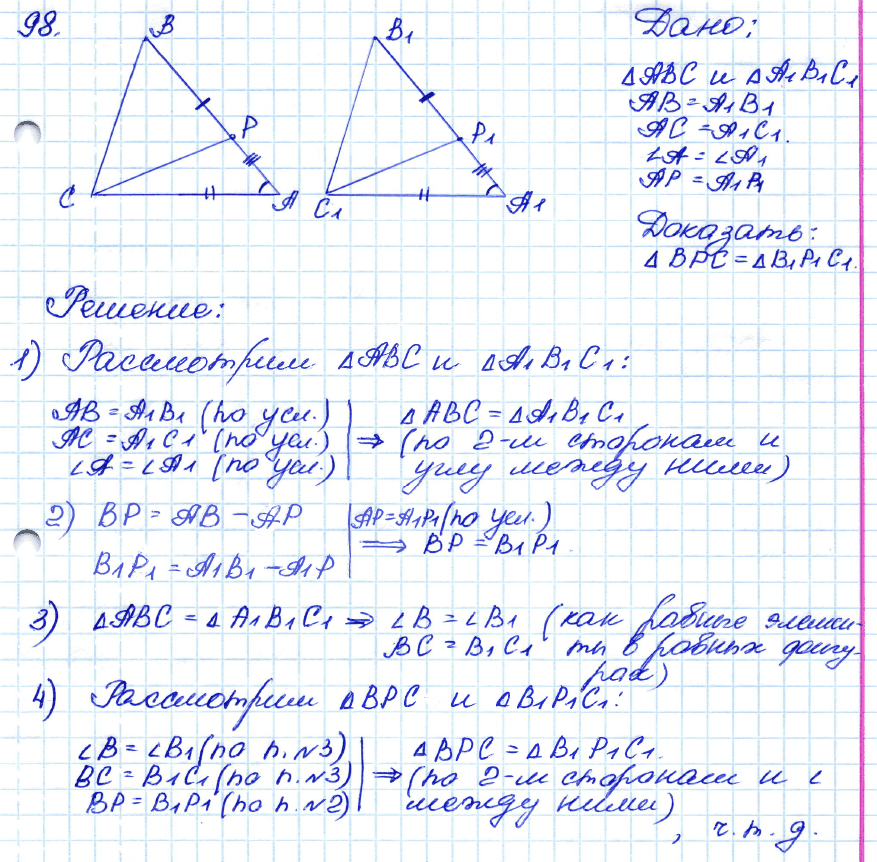 98.
B
P
C
A
B1
P1
C1
A1
Дано:
△ABC и △A1B1C1
AB = A1B1
AC = A1C1.
∠A = ∠A1
AP = A1P1
Доказать:
△BPC = △B1P1C1.
Решение:
1) Рассмотрим △ABC и △A1B1C1:
AB = A1B1 (по усл.)
AC = A1C1 (по усл.)
∠A = ∠A1 (по усл.)
⇒
△ABC = △A1B1C1
(по 2-м сторонам и
углу между ними)
2) BP = AB – AP
B1P1 = A1B1 – A1P
AP = A1P1 (по усл.)
⇒ BP = B1P1.
3) △ABC = △A1B1C1 ⇒ ∠B = ∠B1 (как равные элемен-
BC = B1C1 ты в равных фигу-
рах)
4) Рассмотрим △BPC и △B1P1C1:
∠B = ∠B1 (по п.№3)
BC = B1C1 (по п.№3)
BP = B1P1 (по п.№2)
⇒
△BPC = △B1P1C1.
(по 2-м сторонам и ∠
между ними)
, ч.т.д.